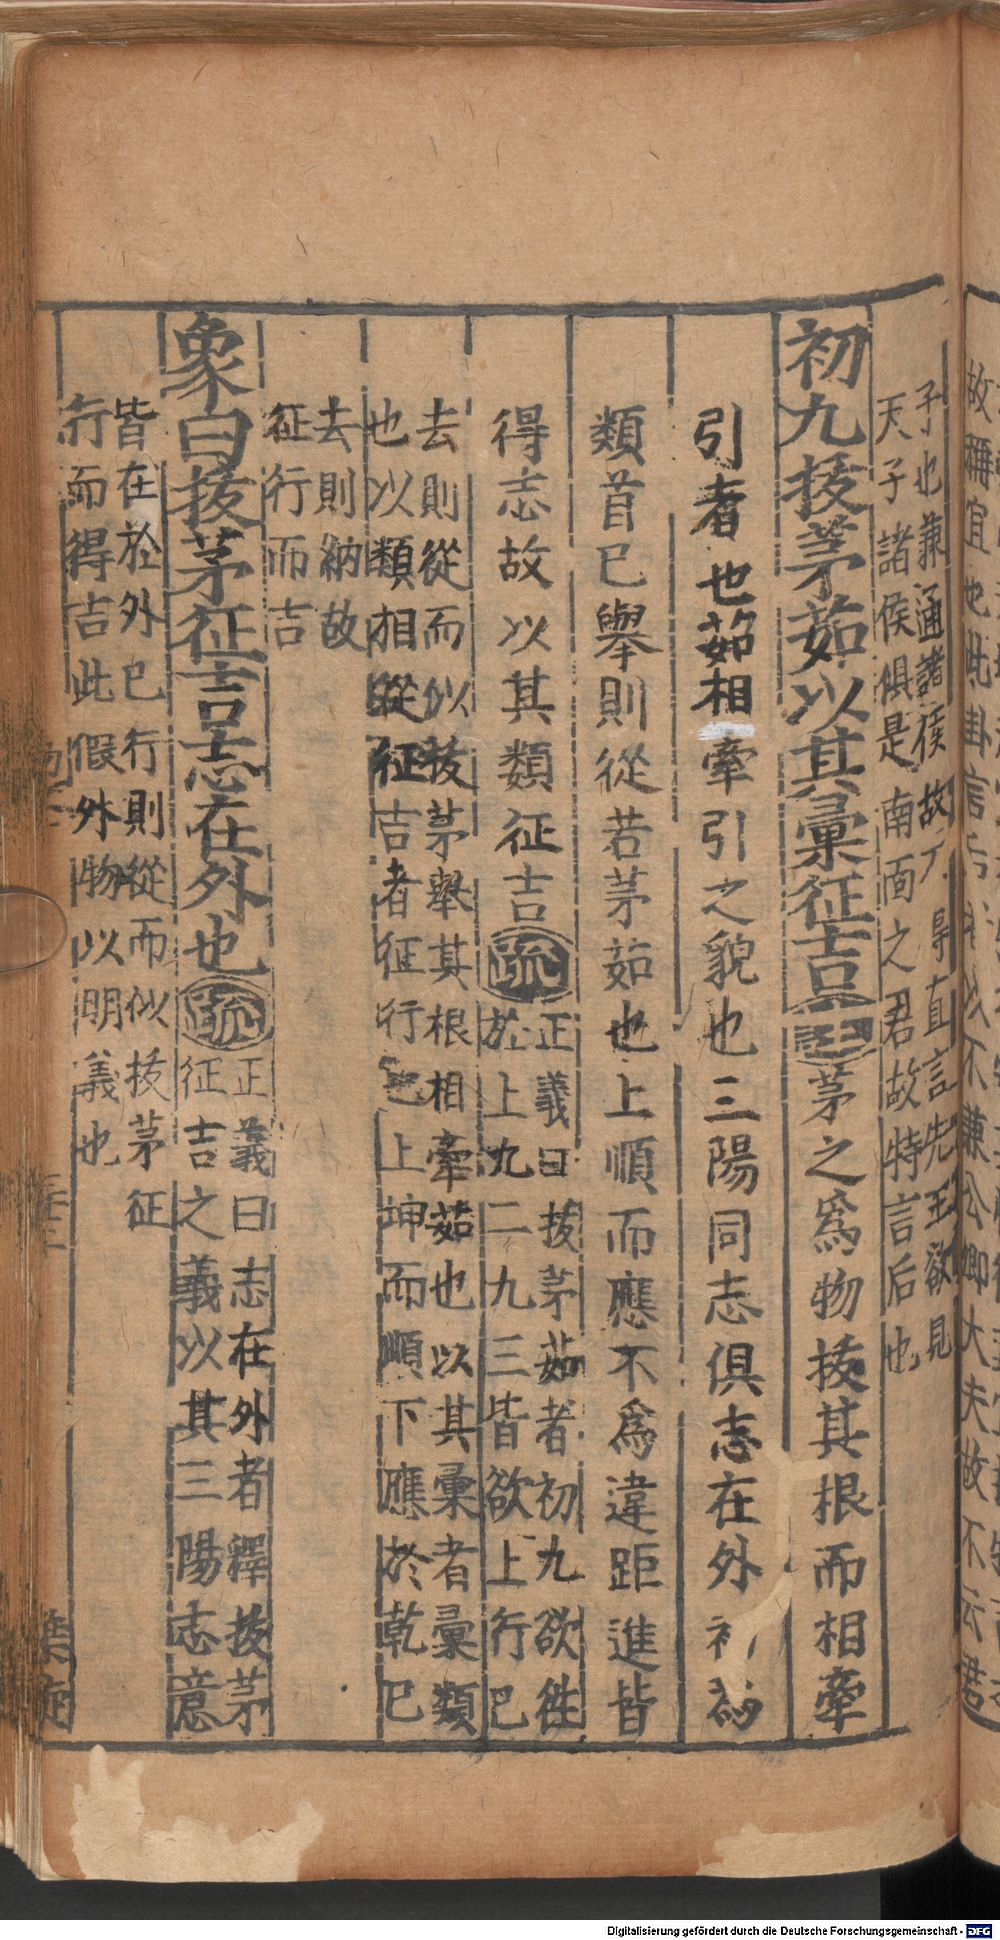 子也兼通諸侯故不得直言先王欲見
天子諸侯俱是南面之君故特言后也
初九拔茅茹以其彙征吉茅之爲物拔其根而相牽
引者也茹相牽引之貌也三陽同志俱志在外初爲
類首已舉則從若茅茹也上順而應不爲違距進皆
得志故以其類征吉疏正義曰拔茅茹者初九欲徃
於上九二九三皆欲上行已
去則從而似拔茅舉其根相牽茹也以其彙者彙類
也以類相從征吉者征行也上坤而順下應於乾已
去則納故
征行而吉
象曰拔茅征吉志在外也疏正義曰志在外者釋拔茅
征吉之義以其三陽志意
皆在於外已行則從而似拔茅征
行而得吉此假外物以明義也
故稱宜也此卦言
不兼公卿大夫故不云君
Digitalisierung gefördert durch die Deutsche Forschungsgemeinschaft - DFG